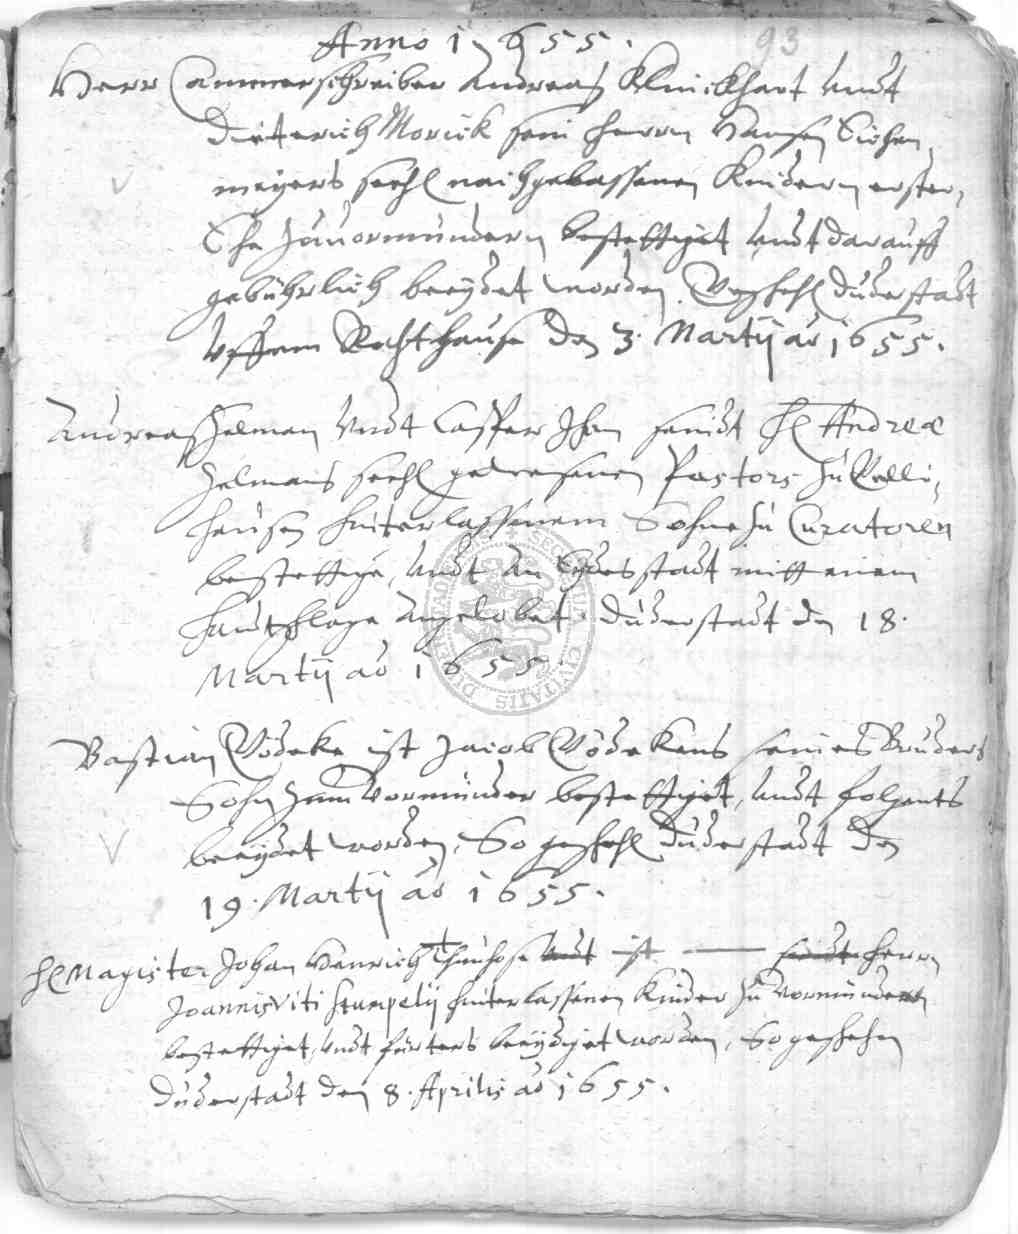 Anno 1655.
93
Herr Cammerschreiber Andreas Klinckhart undt
Dieterich Morick sein Herrn Hansen Eichen,
meyers seehl nachgelassenen Kindern erster,
Ehe zu vormündern bestettiget undt darauff
gebührlich beeydet worden. Duderstadt
Uffem Rathhause den 3. Martij ao 1655.
Andreas Helman undt Casper Ihm seindt H. Andreae
Helmans seehl gewesenen Pastors zu
hausen hinterlassenem Sohne zu Curatoren
bestettige, undt an Eydes stadt mitt einem
handtschlage angelobet. Duderstadt den 18.
Martij ao 1655
Bastian Vödeke ist Jacob Vödekens seines Bruders
Sohn zum Vormünder bestettiget, undt folgents
beeydet worden, So geschehn Duderstadt den
19. Martij ao 1655.
H. Magister Johan Henrich undt ist seindt Herrn
Joannis Viti Stumpelij hinterlassenen Kinder zu Vormündern
bestettiget, undt fürters beeydiget worden, So geschehen
Duderstadt den 8. Aprilis ao 1655.
SECRETUM CIVITATIS